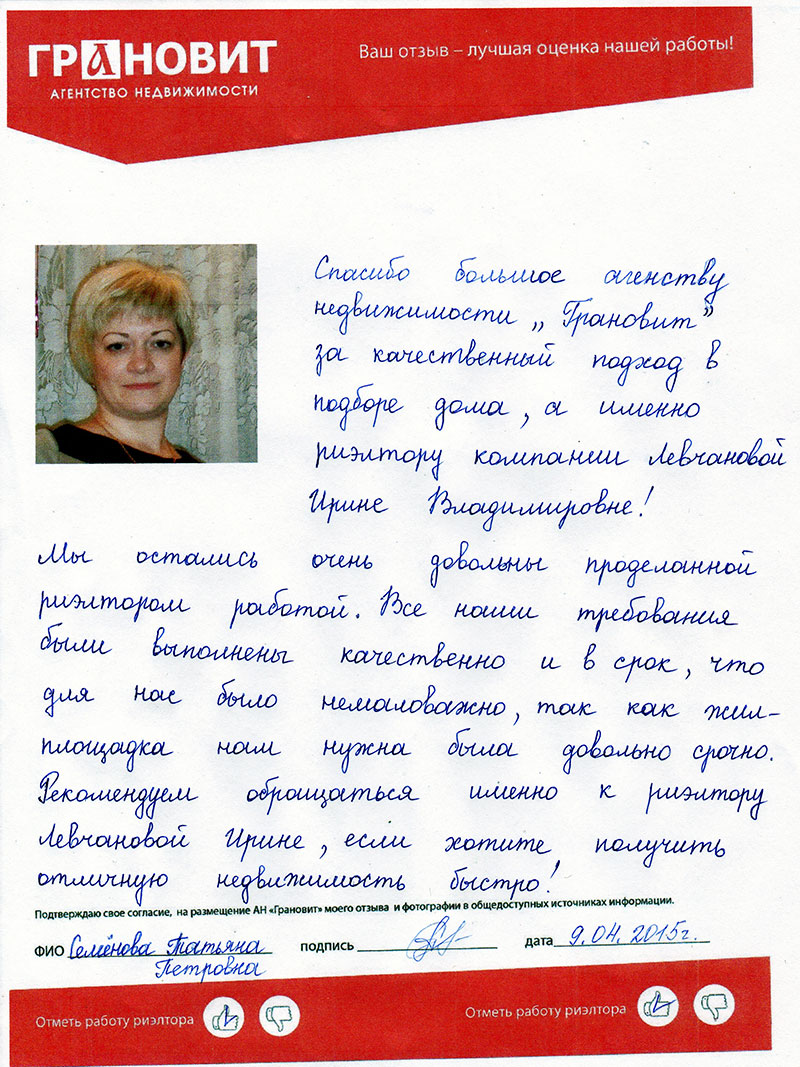 ГРАНОВИТ
АГЕНТСТВО НЕДВИЖИМОСТИ
Ваш отзыв – лучшая оценка нашей работы!
Спасибо большое агенству
недвижимости „Грановит”
за качественный подход в
подборе дома, а именно
риэлтору компании Левчановой
Ирине Владимировне!
Мы остались очень довольны проделанной
риэлтором работой. Все наши требования
были выполнены качественно и в срок, что
для нас было немаловажно, так как жил-
площадка нам нужна была довольно срочно.
Рекомендуем обращаться именно к риэлтору
Левчановой Ирине, если хотите получить
отличную недвижимость быстро!
Подтверждаю свое согласие, на размещение АН «Грановит» моего отзыва и фотографии в общедоступных источниках информации.
ФИО Семёнова Татьяна подпись дата 9.04.2015г.
Петровна
Отметь работу риэлтора Отметь работу риэлтора